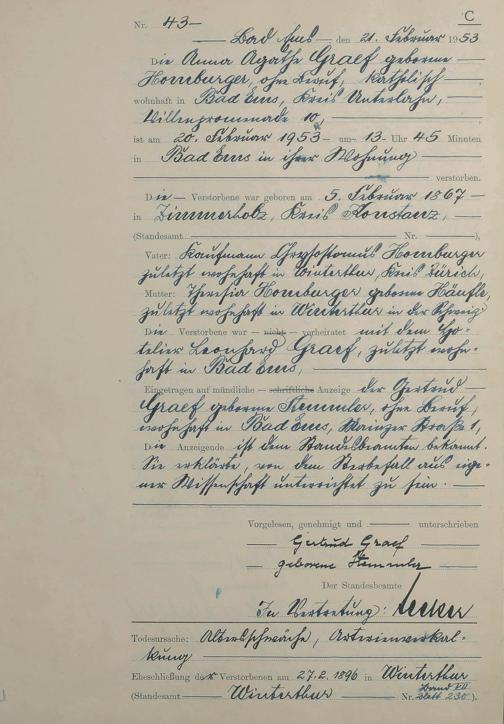 C
Nr. 43-
Bad Ems den 21. Februar 1953
Die Anna Agathe Graef geborene
Homburger, ohne Beruf, katholisch
wohnhaft in Bad Ems, Kreis Unterlahn,
Villenpromenade 10,
ist am 20. Februar 1953 um 13 Uhr 45 Minuten
in Bad Ems in ihrer Wohnung
verstorben.
Die Verstorbene war geboren am 5. Februar 1867
in Zimmerholz, Kreis Konstanz,
(Standesamt Nr. ),
Vater: Kaufmann Chrysostomus Homburger
zuletzt wohnhaft in Winterthur, Kreis Zürich,
Mutter: Theresia Homburger geborene Häufle,
zuletzt wohnhaft in Winterthur in der Schweiz
Die Verstorbene war - nicht - verheiratet mit dem Ho-
telier Leonhard Graef, zuletzt wohn-
haft in Bad Ems,
Eingetragen auf mündliche - schriftliche Anzeige der Gertrud
Graef geborene Stemmler, ohne Beruf,
wohnhaft in Bad Ems, Mainzer Straße 1,
Die Anzeigende ist dem Standesbeamten bekannt.
Sie erklärte, von dem Sterbefall aus eige-
ner Wissenschaft unterrichtet zu sein.
Vorgelesen, genehmigt und unterschrieben
Gertrud Graef
geborene Stemmler
Der Standesbeamte
In Vertretung:
Todesursache: Altersschwäche, Arterienverkal-
kung
Eheschließung der Verstorbenen am 27.2.1896 in Winterthur
Band VII
(Standesamt Winterthur Nr. Blatt 230).